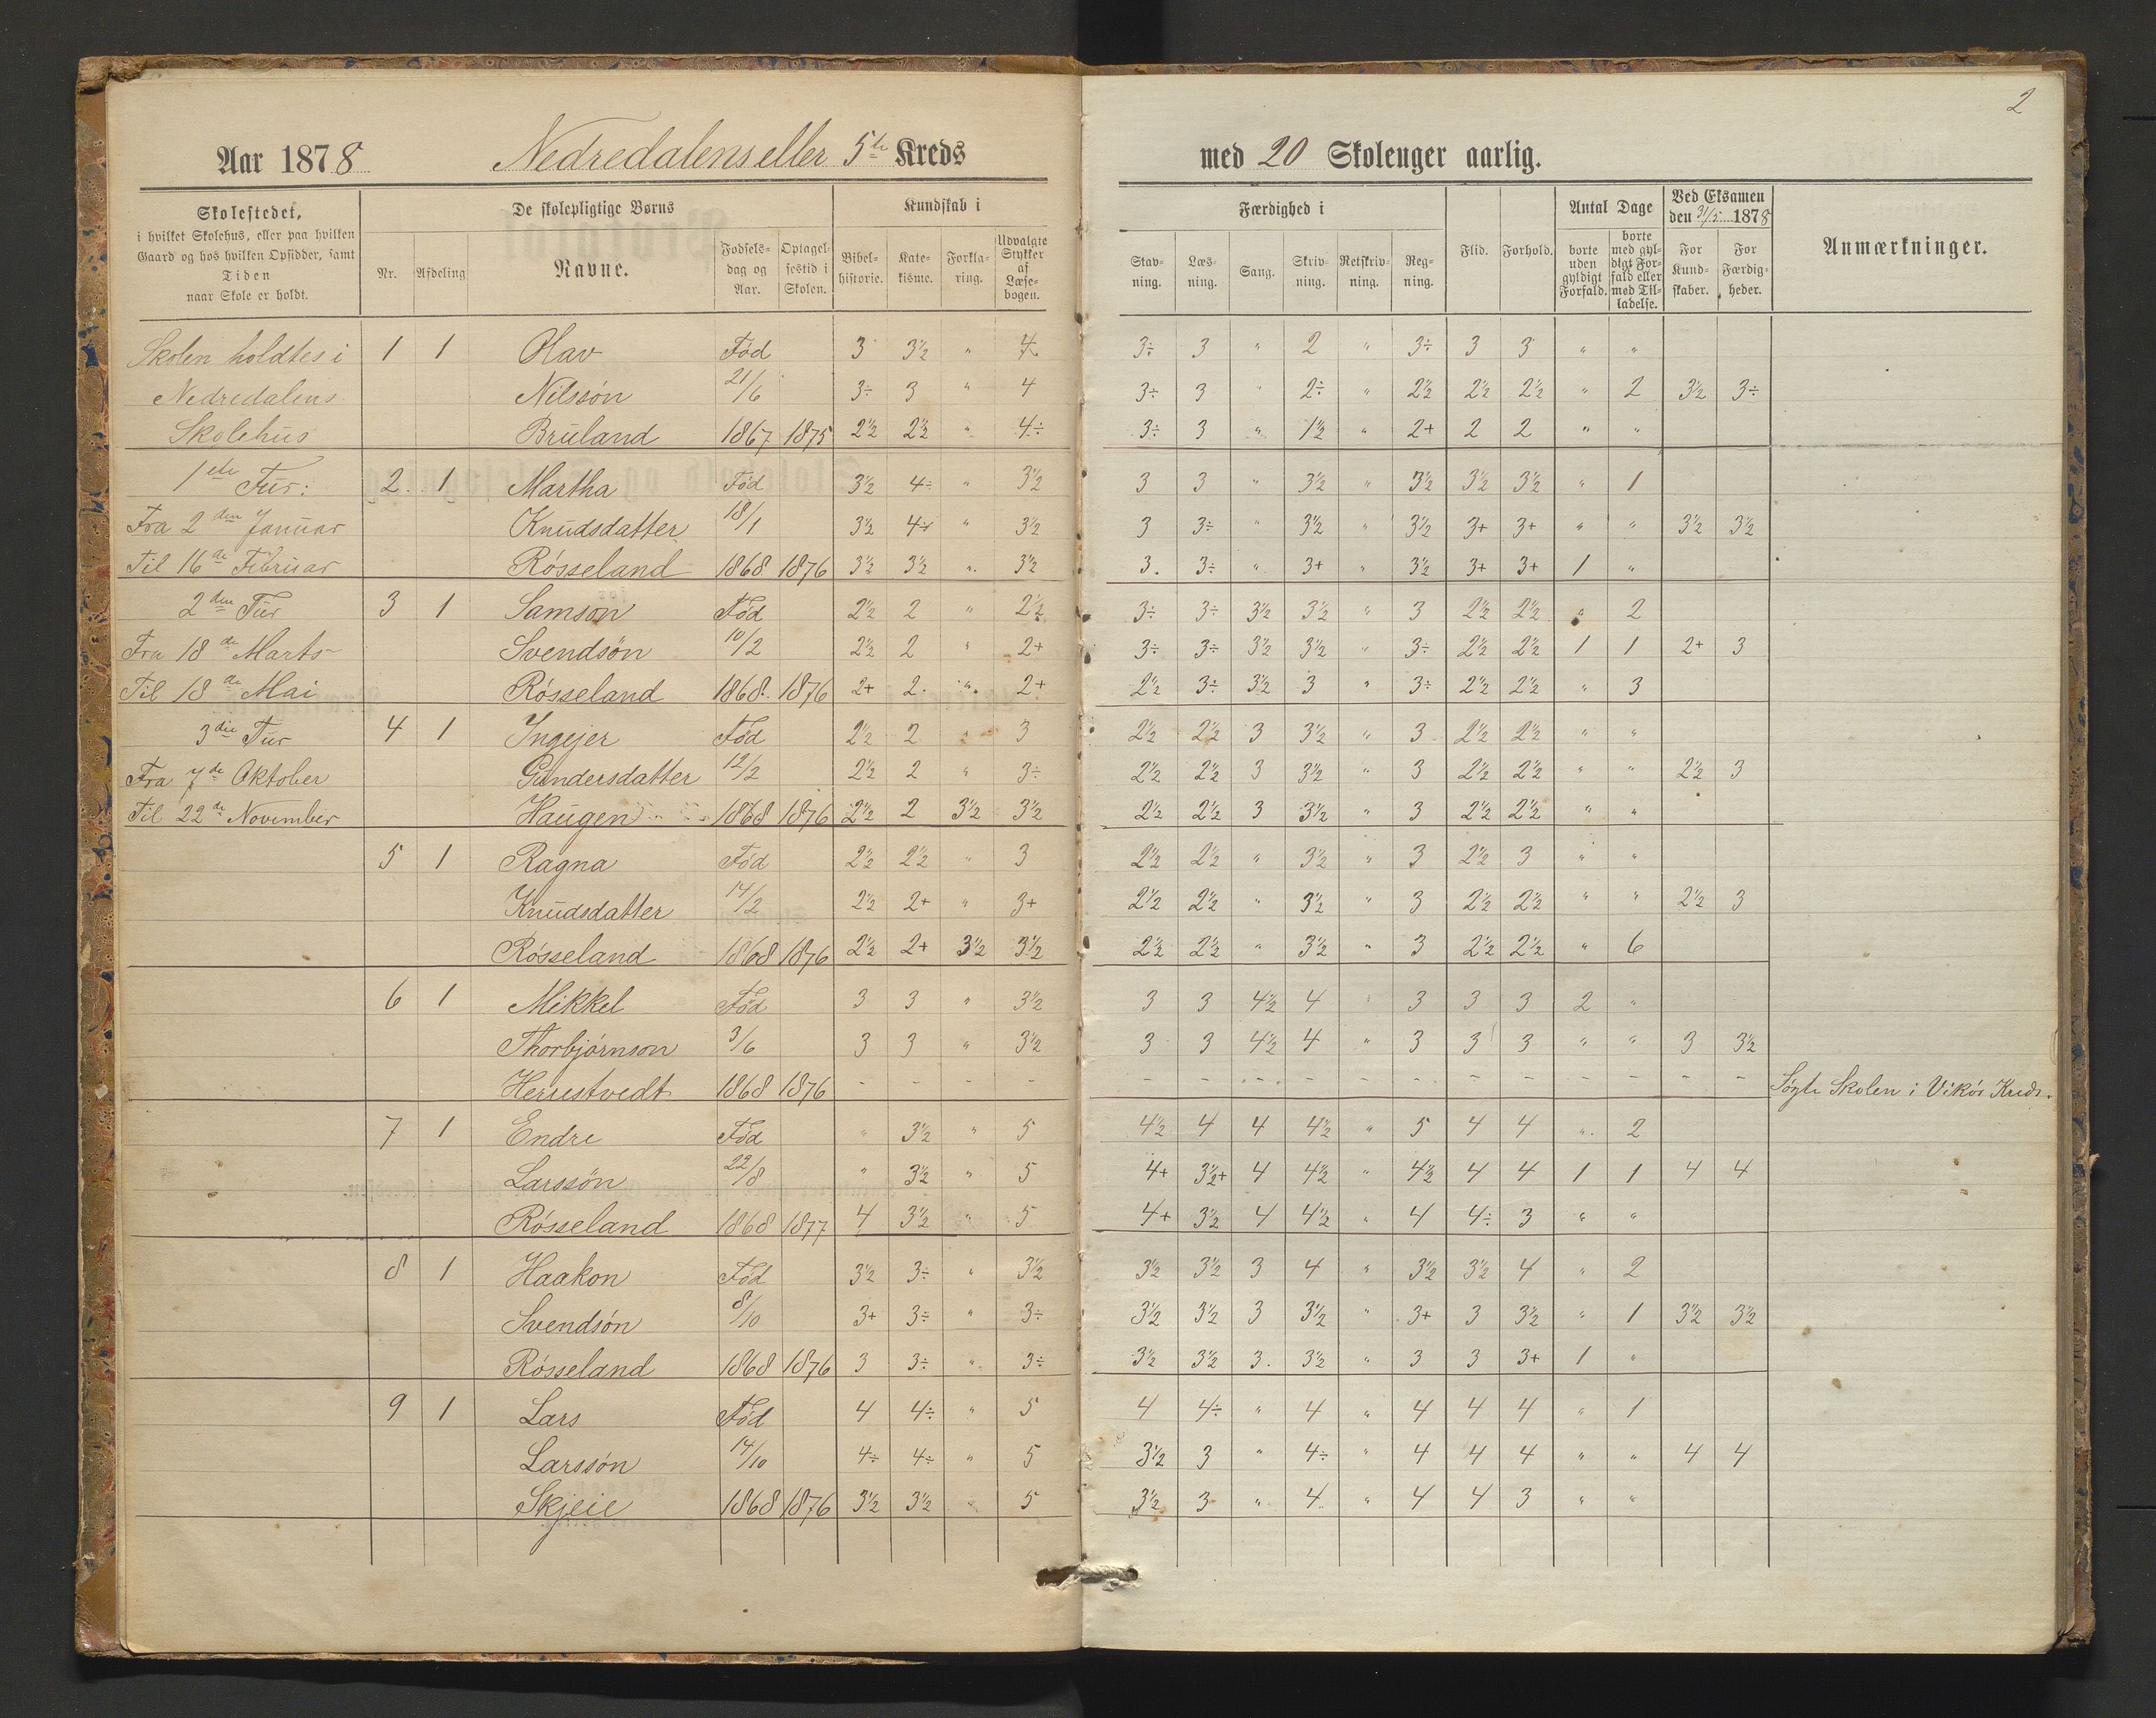 2
Aar 1878 Nedredalens eller 5te Kreds med 20 Skoleuger aarlig.
Skolestedet,
i hvilket Skolehus, eller paa hvilken
Gaard og hos hvilken Opsidder, samt
Tiden
naar Skole er holdt.
De skolepligtige Børns
Nr. Afdeling Navne. Fødselsdag og Aar. Optagelsestid i Skolen.
Kundskab i
Bibelhistorie. Katekisme. Forklaring. Udvalgte Stykker af Læsebogen.
Færdighed i
Stavning. Læsning. Sang. Skrivning. Retskrivning. Regning.
Flid. Forhold.
Antal Dage
borte uden gyldigt Forfald. borte med gyldigt Forfald eller med Tilladelse.
Ved Eksamen den 31/5 1878
For Kundskaber. For Færdigheder.
Anmærkninger.
Skolen holdtes i 1 1 Olav Fød 3 3½ " 4 3÷ 3 " 2 " 3÷ 3 3 " "
Nedredalens Nilssøn 21/6 3÷ 3 " 4 3÷ 3 " 2÷ " 2½ 2½ 2½ " 2 3½ 3÷
Skolehus Bruland 1867 1875 2½ 2½ " 4÷ 3÷ 3 " 1½ " 2+ 2 2 " "
1ste Tur: 2. 1 Martha Fød 3½ 4÷ " 3½ 3 3 " 3½ " 3½ 3½ 3½ " 1
Fra 2den Januar Knudsdatter 18/1 3½ 4÷ " 3½ 3 3÷ " 3½ " 3½ 3+ 3+ " " 3½ 3½
Til 16de Februar Røsseland 1868 1876 3½ 3½ " 3½ 3. 3÷ " 3+ " 3½ 3+ 3+ 1 "
2den Tur 3 1 Samson Fød 2½ 2 " 2½ 3÷ 3÷ 3½ 3½ " 3 2½ 2½ " 2
Fra 18de Marts Svendsøn 10/2 2½ 2 " 2+ 3÷ 3÷ 3½ 3½ " 3÷ 2½ 2½ 1 1 2+ 3
Til 18de Mai Røsseland 1868. 1876 2+ 2. " 2+ 2½ 3÷ 3½ 3 " 3÷ 2½ 2½ " 3
3die Tur 4 1 Ingejer Fød 2½ 2 " 3 2½ 2½ 3 3½ " 3 2½ 2½ " "
Fra 7de Oktober Gundersdatter 12/2 2½ 2 " 3÷ 2½ 2½ 3 3½ " 3 2½ 2½ " " 2½ 3
Til 22de November Haugen 1868 1876 2½ 2 3½ 3½ 2½ 2½ 3 3½ " 3 2½ 2½ " "
5 1 Ragna Fød 2½ 2½ " 3 2½ 2½ " 3½ " 3 2½ 3 " "
Knudsdatter 14/2 2½ 2+ " 3+ 2½ 2½ " 3½ " 3 2½ 2½ " " 2½ 3
Røsseland 1868 1876 2½ 2+ 3½ 3½ 2½ 2½ " 3½ " 3 2½ 2½ " 6
6 1 Mikkel Fød 3 3 " 3½ 3 3 4½ 4 " 3 3 3 2 "
Thorbjørnson 3/6 3 3 " 3½ 3 3 4½ 4 " 3 3 3 " " 3 3½
Herrestvedt 1868 1876 - - - - - - - - - - - - - - - - Søgte Skolen i Vikør Kreds.
7 1 Endre Fød " 3½ " 5 4½ 4 4 4½ " 5 4 4 " 2
Larssøn 22/8 " 3½ " 5 4+ 3½+ 4 4½ " 4½ 4 4 1 1 4 4
Røsseland 1868 1877 4 3½ " 5 4+ 3½ 4 4½ " 4 4÷ 3 " "
8 1 Haakon Fød 3½ 3÷ " 3½ 3½ 3½ 3 4 " 3½ 3½ 4 " 2
Svendsøn 8/10 3+ 3÷ " 3÷ 3½ 3½ 3 3½ " 3+ 3 3½ " 1 3½ 3½
Røsseland 1868 1876 3 3÷ " 3÷ 3½ 3½ 3. 3½ " 3 3 3+ 1 "
9 1 Lars Fød 4 4÷ " 5 4 4÷ " 4 " 4 4 4 " 1
Larssøn 14/10 4÷ 4÷ " 5 3½ 3 " 4÷ " 4 4 4 " " 4 4
Skjeie 1868 1876 3½ 3½ " 5 3½ 3 " 4 " 4 4 3 " "